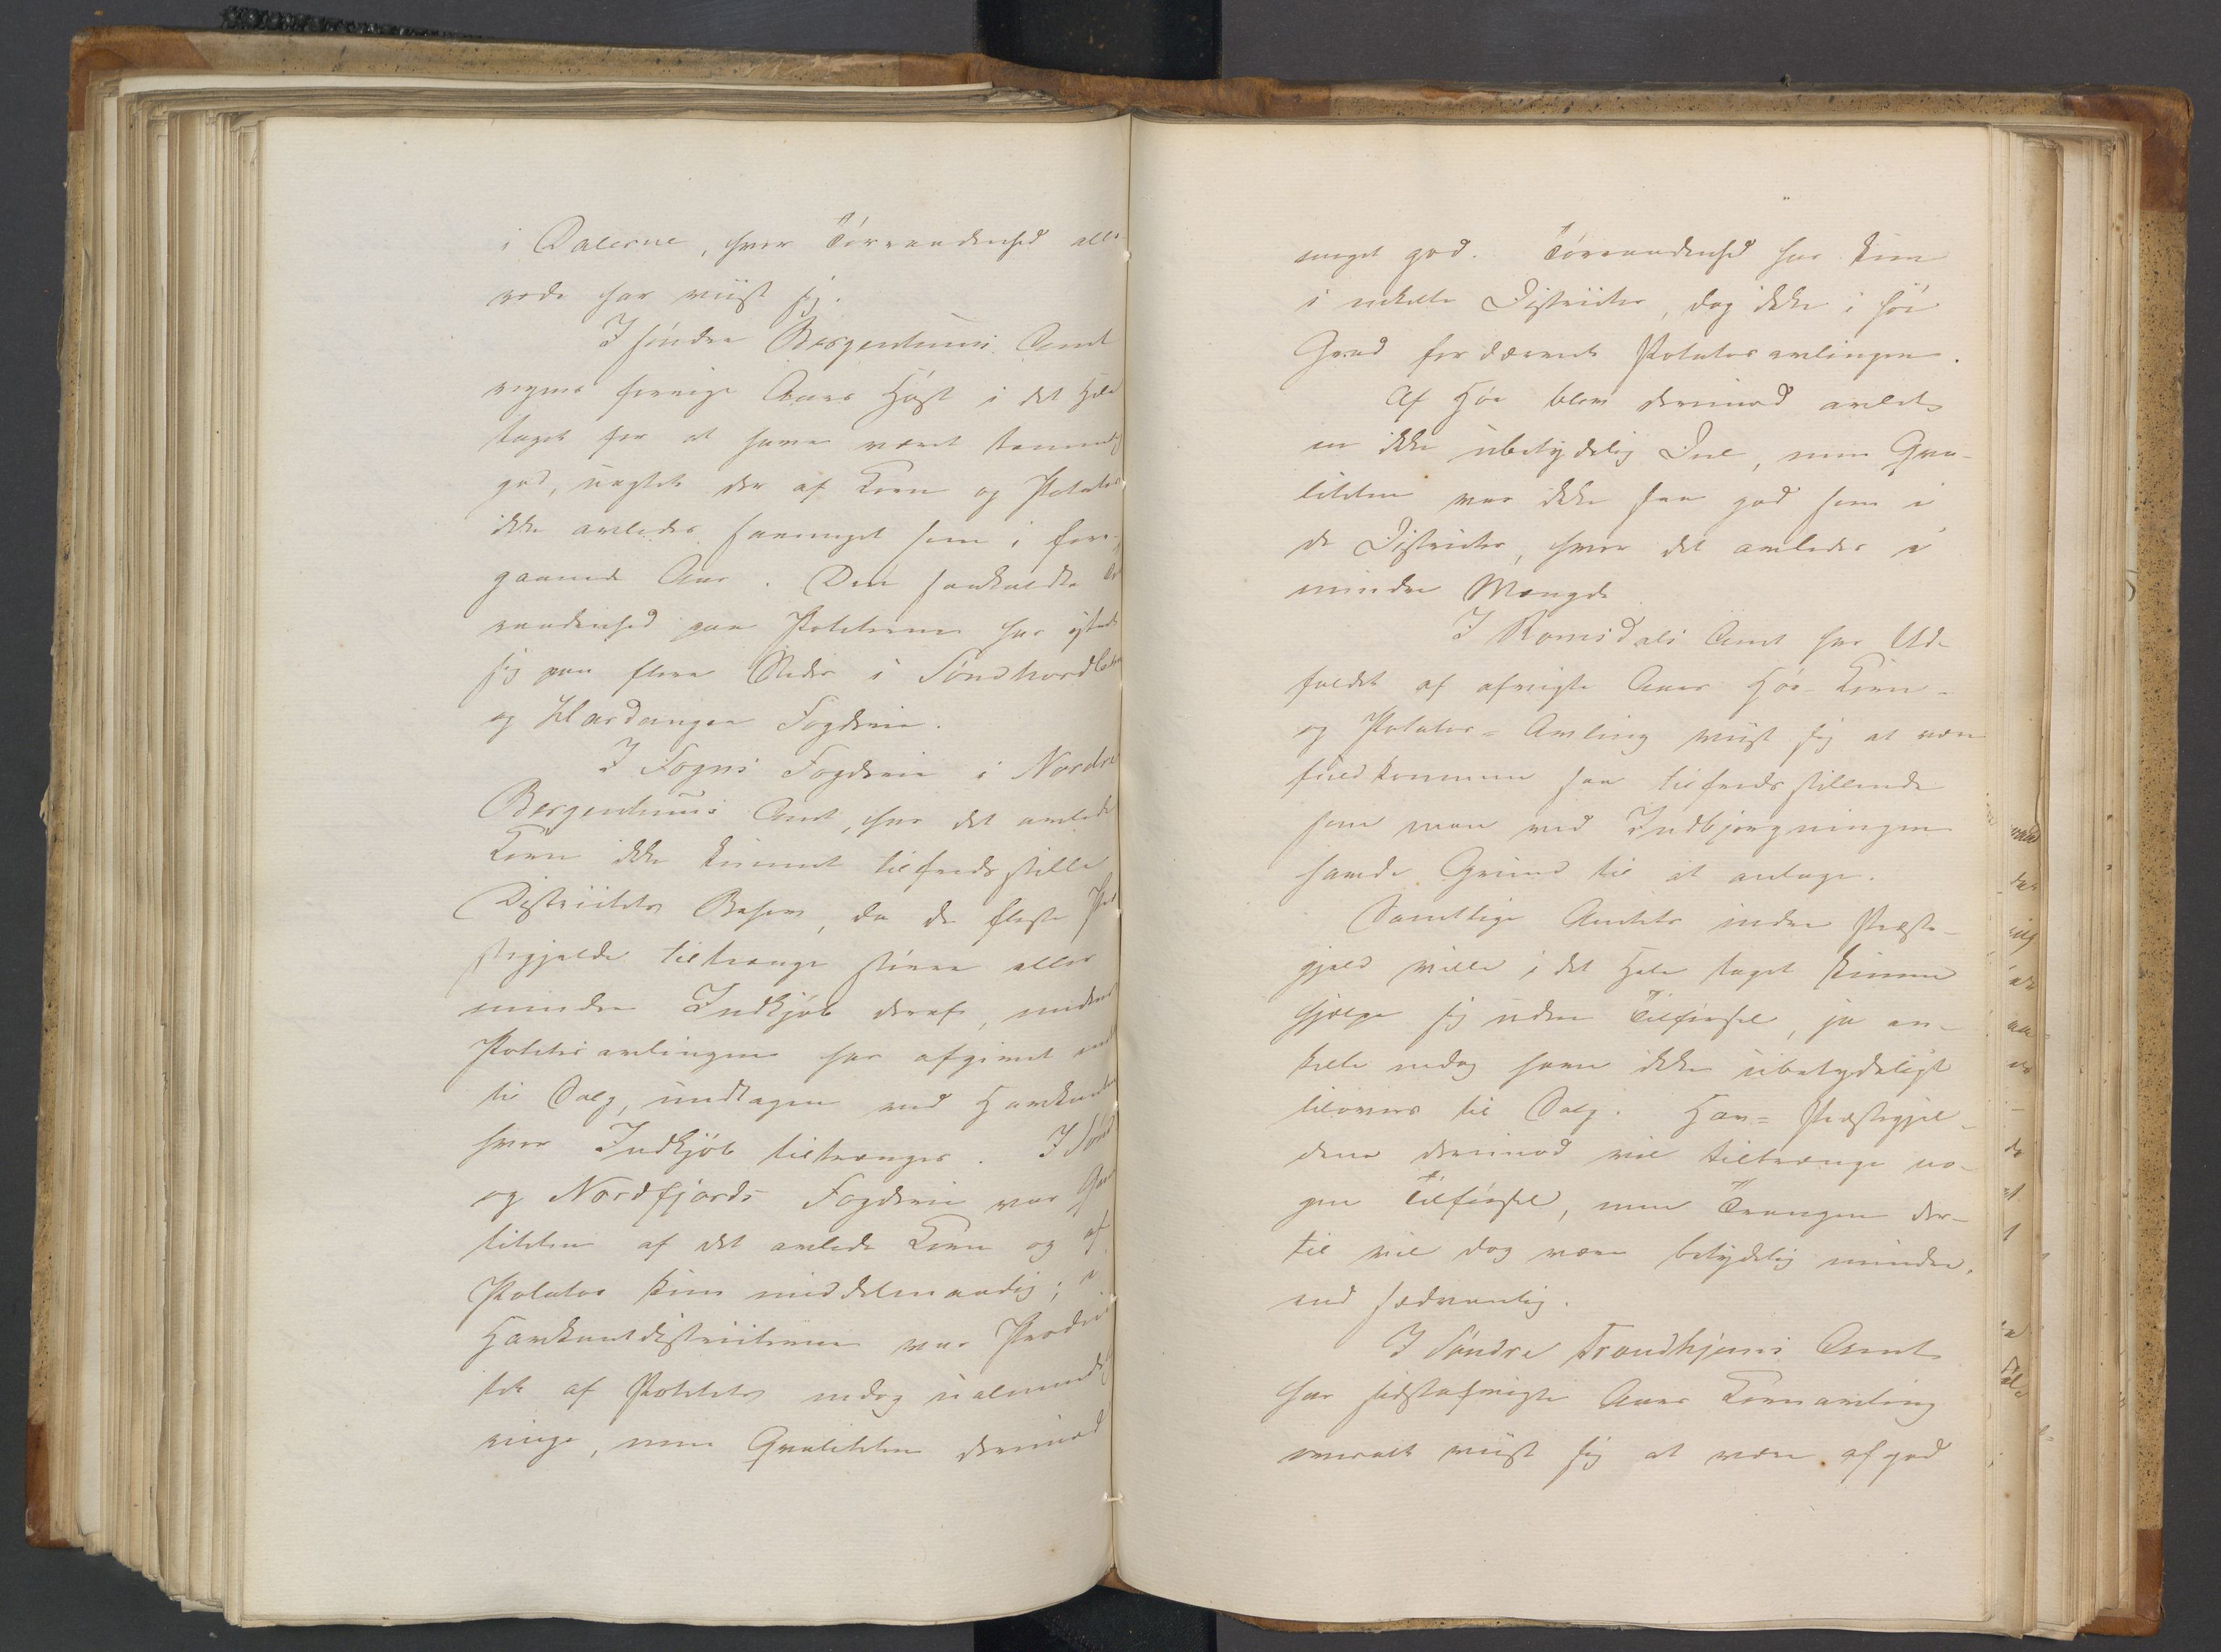 i Dalerne, hvor Tørraadenhed alle-
rede har viist sig.
I søndre Bergenhuus Amt
regnes forrige Aars Høst i det Hele
taget for at have været temmelig
god, uagtet der af Korn og Potetes
ikke avledes saameget som i fore-
gaaende Aar. Den saakaldte Tør
raadenhed paa Poteterne har yttret
sig paa flere Steder i Søndhordlehn
og Hardanger Fogderie.
I Sogns Fogderie i Nordre
Bergenhuus Amt, har det avlede
Korn ikke kunnet tilfredsstille
Districtets Behov, da de fleste Præ
stegjelde tiltrænge større eller
mindre Indkjøb deraf, medens
Potetesavlingen har afgivet endog
til Salg, undtagen ved Havkanten
hvor Indkjøb tiltrænges. I Sønd
og Nordfjords Fogderie var Qva
liteten af det avlede Korn og af
Potetes kun middelmaadig; i
Havkantdistricterne var Produc
tet af Potetes endog ualmindelig
ringe, men Qvaliteten derimod
meget god. Tørraadenhed har kun
i enkelte Districter, dog ikke i høi
Grad fordærvet Potetesavlingen.
Af Høe blev derimod avlet
en ikke ubetydelig Deel, men Qva-
liteten var ikke saa god som i
de Districter, hvor det avledes i
mindre Mængde
I Romsdals Amt har Ud-
faldet af afvigte Aars Høe- Korn-
og Potetes-Avling viist sig at være
fuldkommen saa tilfredsstillende
som man ved Indbjergningen
havde Grund til at antage.
Samtlige Amtets indre Præste-
gjeld ville i det Hele taget kunne
hjælpe sig uden Tilførsel, ja en-
kelte endog have ikke ubetydeligt
tilovers til Salg. Hav-Præstegjel-
dene derimod vil tiltrænge no-
gen Tilførsel, men Trangen der-
til vil dog være betydelig mindre,
end sædvanlig.
I Søndre Trondhjems Amt
har sidstafvigte Aars Kornavling
overalt viist sig at være af god